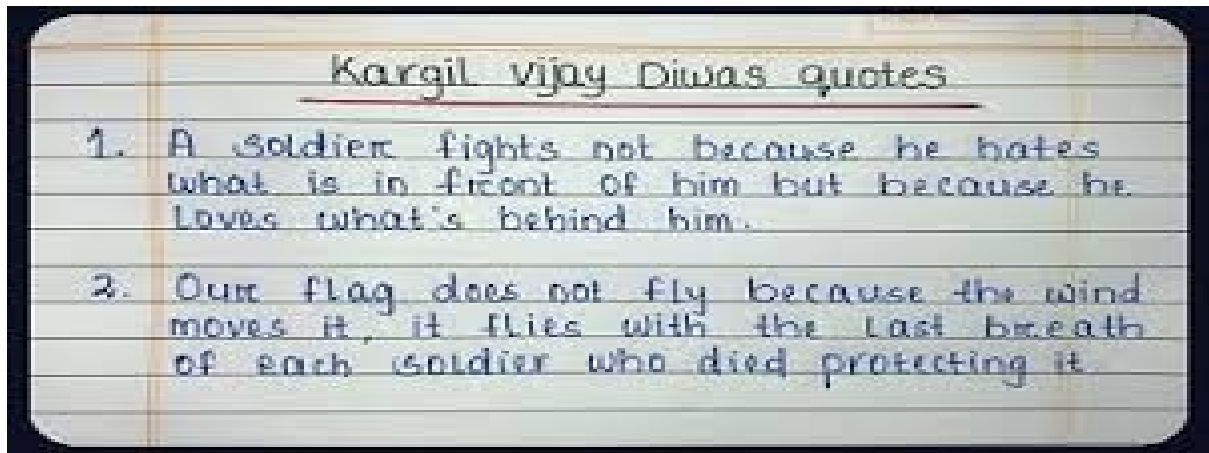 Kargil Vijay Diwas quotes
1. A soldier fights not because he hates
what is in front of him but because he
Loves what's behind him.
2. Our flag does not fly because the wind
moves it, it flies with the Last breath
of each soldier who died protecting it